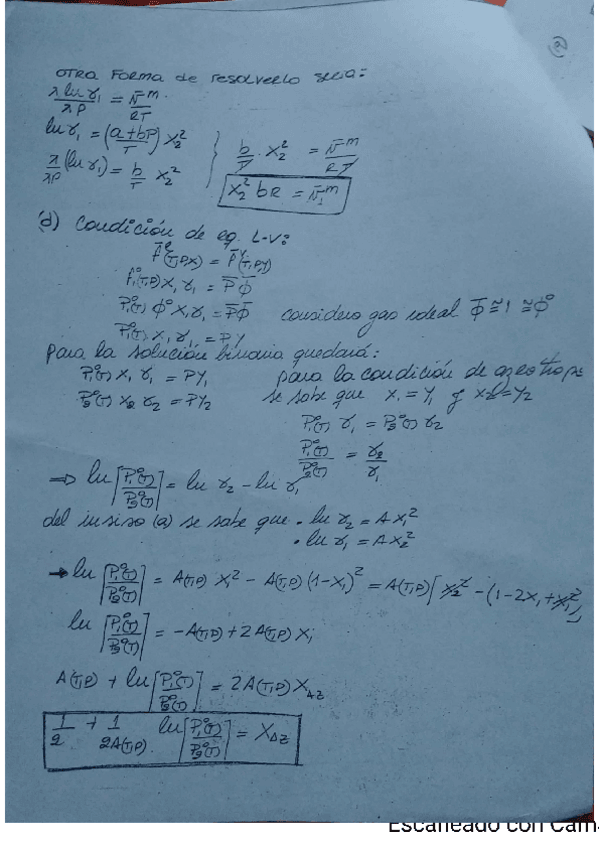 (9)
OTRA FORMA de resolverlo seria:
∂ ln γ₁ / ∂P = V̄ᵐ / RT
ln γ₁ = (a+bP / T) X₂²
∂/∂P (ln γ₁) = b/T X₂²
b/T · X₂² = V̄ᵐ / RT
X₂² bR = V̄₁ᵐ
d) Condición de eq. L-V:
(T,P,X) = (T,P,Y)
f₁°(T,P) X₁ γ₁ = P Φ̄
P₁°(T) Φ° X₁ γ₁ = P Φ̄ considero gas ideal Φ̄ ≅ 1 ≅ Φ°
P₁°(T) X₁ γ₁ = PY
para la solución binaria quedará:
P₁°(T) X₁ γ₁ = PY₁ para la condición de azeotropo
P₂°(T) X₂ γ₂ = PY₂ se sabe que X₁ = Y₁ y X₂ = Y₂
P₁°(T) γ₁ = P₂°(T) γ₂
P₁°(T) / P₂°(T) = γ₂ / γ₁
⇒ ln [P₁°(T) / P₂°(T)] = ln γ₂ - ln γ₁
del insiso (a) se sabe que • ln γ₂ = AX₁²
• ln γ₁ = AX₂²
→ ln [P₁°(T) / P₂°(T)] = A(T,P) X₁² - A(T,P) (1-X₁)² = A(T,P) [X₂² - (1-2X₁+X₁²)]
ln [P₁°(T) / P₂°(T)] = -A(T,P) + 2A(T,P) X₁
A(T,P) + ln [P₁°(T) / P₂°(T)] = 2A(T,P) X_AZ
1/2 + 1/2A(T,P) ln [P₁°(T) / P₂°(T)] = X_AZ
Escaneado con Cam